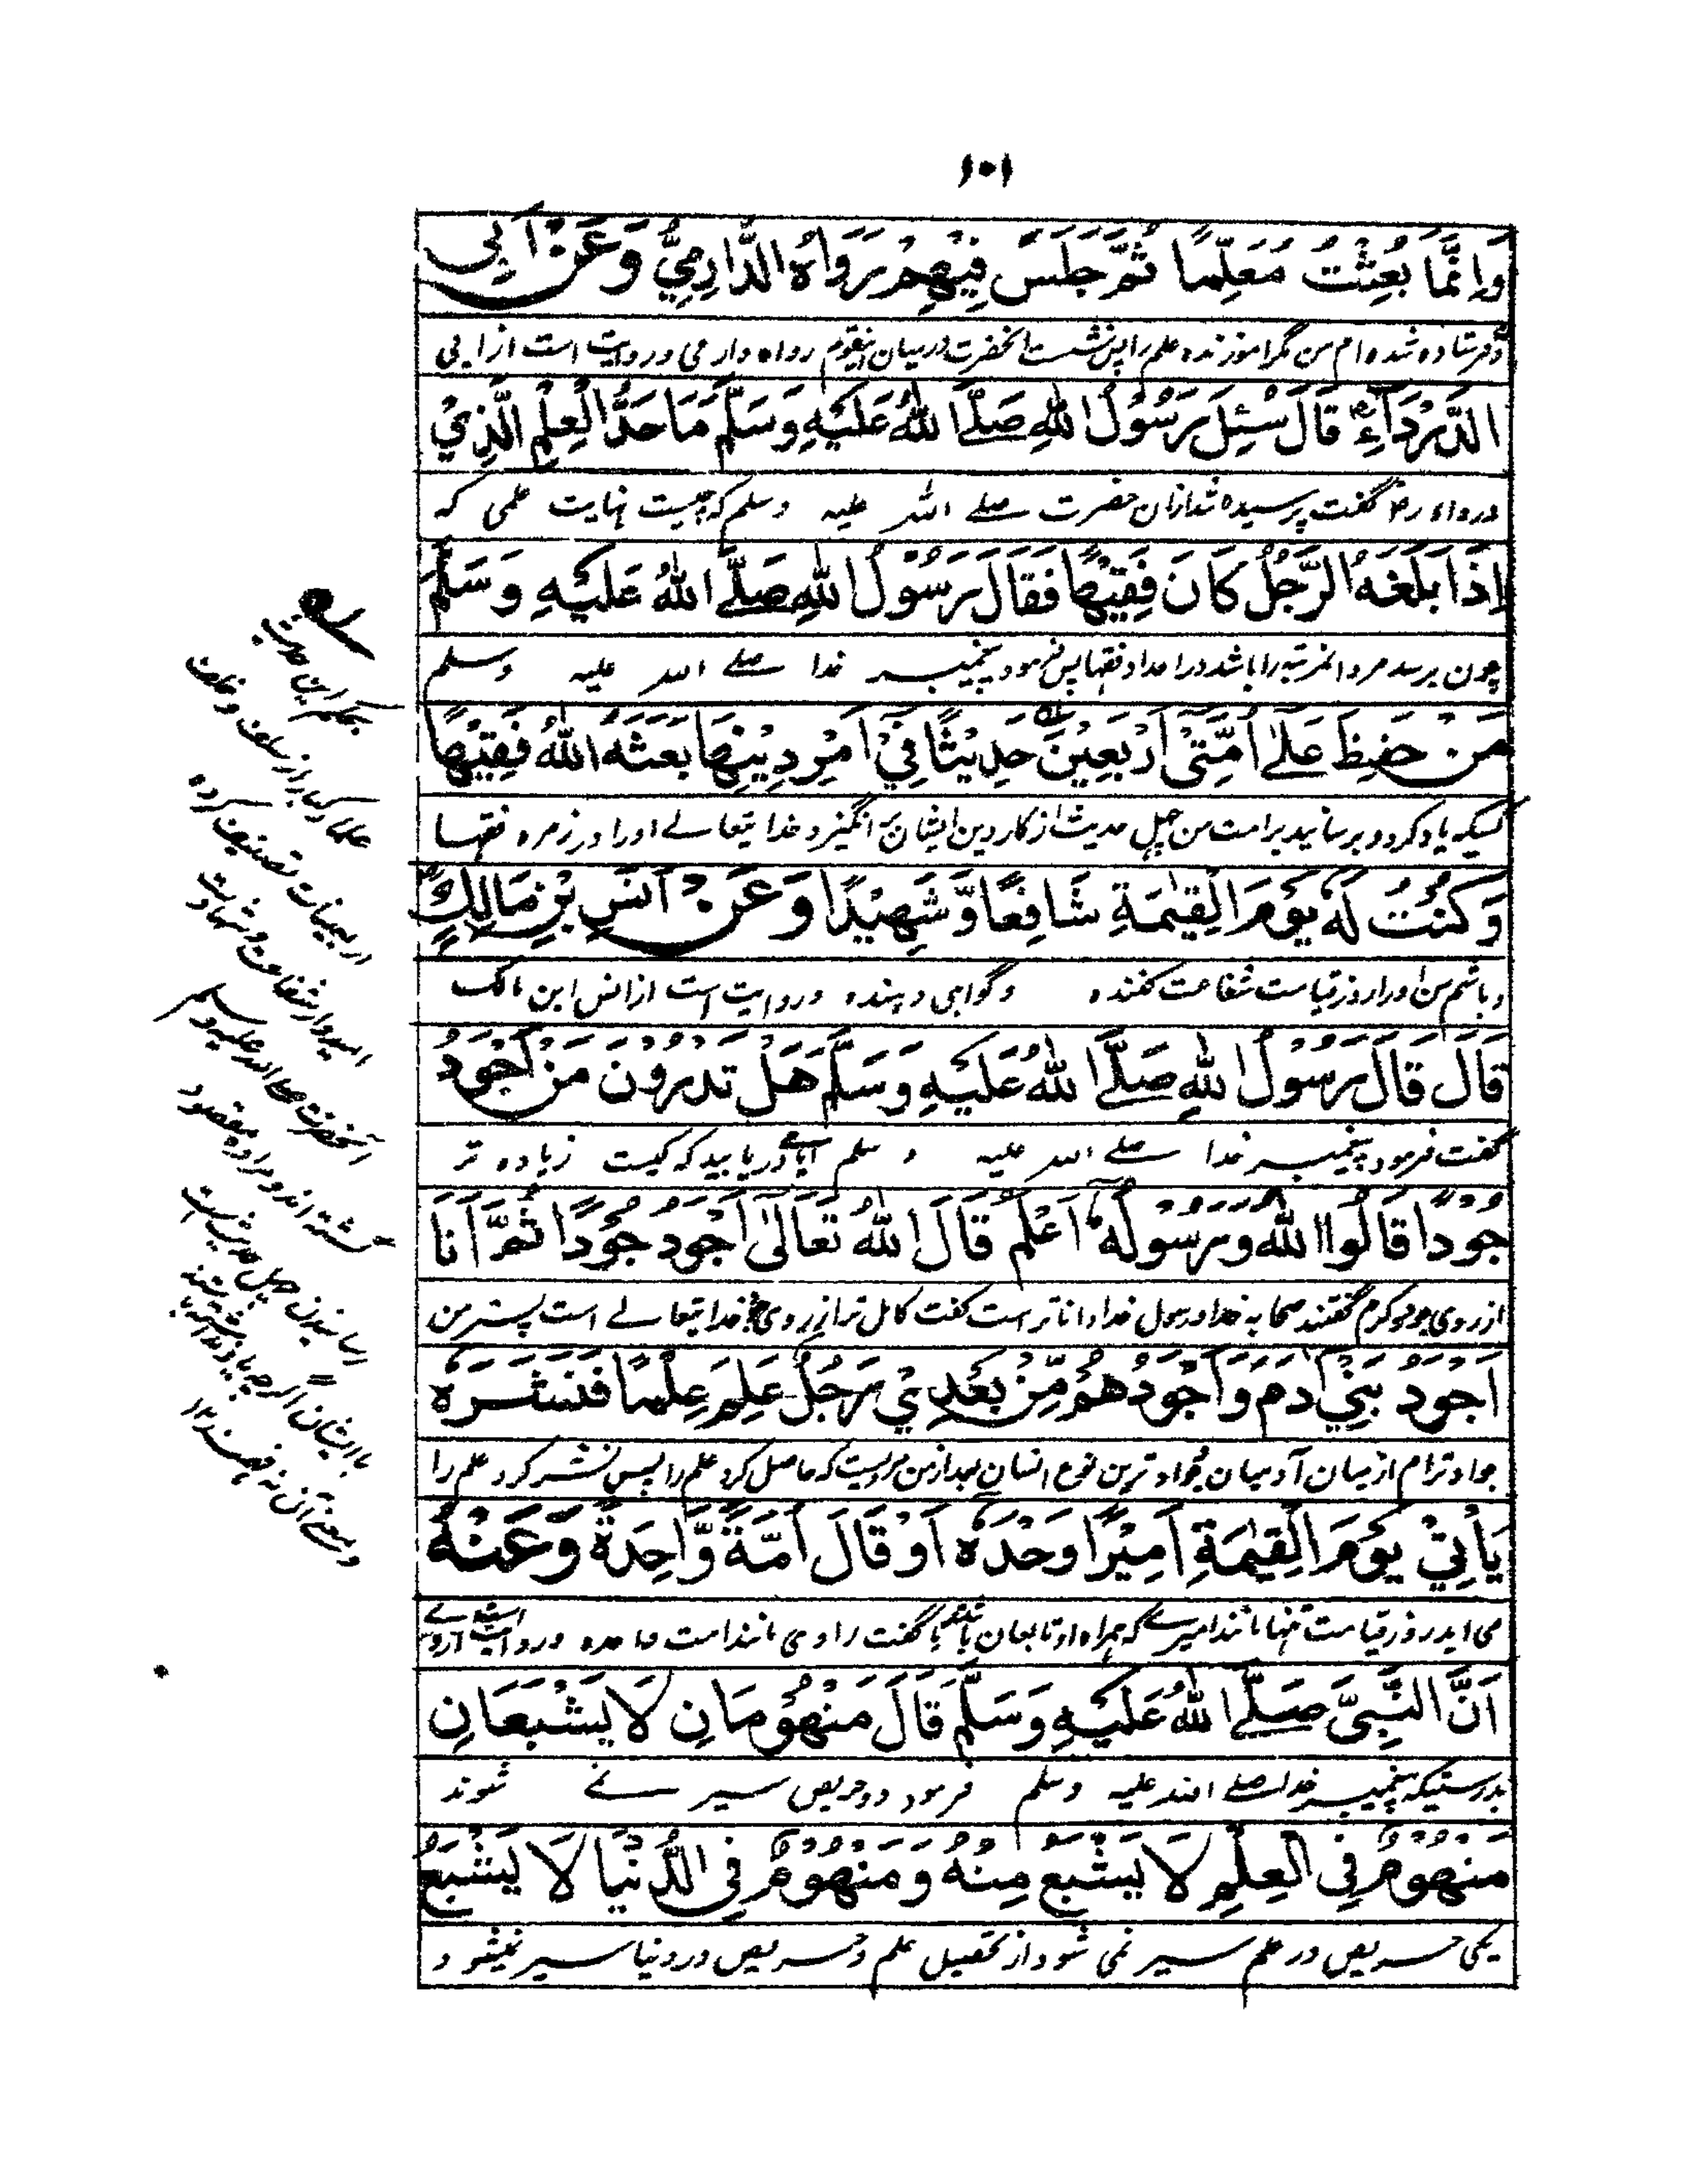 ۱۰۱
وَاِنَّمَا بُعِثْتُ مُعَلِّمًا ثُمَّ جَلَسَ فِيْهِمْ رَوَاهُ الدَّارِمِيُّ وَعَنْ اَبِي
وفرستاده شده ام من مگر اموزنده علم را پس نشست آنحضرت درمیان اینقوم رواه دارمی و روایت است از ابی
الدَّرْدَاءِ قَالَ سُئِلَ رَسُوْلُ اللهِ صَلَّے اللهُ عَلَيْهِ وَسَلَّمَ مَا حَدُّ الْعِلْمِ الَّذِيْ
درداء رض گفت پرسیده شد ازان حضرت صلے الله علیه وسلم که چیست نهایت علمی که
اِذَا بَلَغَهُ الرَّجُلُ كَانَ فَقِيْهًا فَقَالَ رَسُوْلُ اللهِ صَلَّے اللهُ عَلَيْهِ وَسَلَّمَ
چون برسد مرد انمرتبه را باشد در اعداد فقها پس فرمود پیغمبر خدا صلے الله علیه وسلم
مَنْ حَفِظَ عَلٰے اُمَّتِيْ اَرْبَعِيْنَ حَدِيْثًا فِيْ اَمْرِ دِيْنِهَا بَعَثَهُ اللهُ فَقِيْهًا
کسیکه یاد کرد و برسانید بر امت من چهل حدیث از کار دین ایشان بر انگیزد خدا یتعالے اورا در زمره فقها
وَكُنْتُ لَهُ يَوْمَ الْقِيٰمَةِ شَافِعًا وَّ شَهِيْدًا وَعَنْ اَنَسِ بْنِ مَالِكٍ
و باشم من اورا روز قیامت شفاعت کننده وگواهی دهنده و روایت است از انس ابن مالک
قَالَ قَالَ رَسُوْلُ اللهِ صَلَّے اللهُ عَلَيْهِ وَسَلَّمَ هَلْ تَدْرُوْنَ مَنْ اَجْوَدُ
گفت فرمود پیغمبر خدا صلے الله علیه و سلم آیا در یابید که کیست زیاده تر
جُوْدًا قَالُوا اللهُ وَرَسُوْلُهُ اَعْلَمُ قَالَ اللهُ تَعَالٰى اَجْوَدُ جُوْدًا ثُمَّ اَنَا
از روی جود و کرم گفتند صحابه خدا و رسول خدا داناتر است گفت کامل تر از روی خدا یتعالے است پستر من
اَجْوَدُ بَنِيْ اٰدَمَ وَاَجْوَدُهُمْ مِّنْ بَعْدِيْ رَجُلٌ عَلِمَ عِلْمًا فَنَشَرَهُ
جواد ترام از میان آدمیان وجواد ترین نوع انسان بعد از من مردیست که حاصل کرد علم را پس نشر کرد علم را
يَأْتِيْ يَوْمَ الْقِيٰمَةِ اَمِيْرًا وَحْدَهُ اَوْ قَالَ اُمَّةً وَّاحِدَةً وَعَنْهُ
می اید روز قیامت تنها مانند امیرے که همراه او تابعان باشند یا گفت راوی مانند امت واحده و روایت است از وے
اَنَّ النَّبِيَّ صَلَّے اللهُ عَلَيْهِ وَسَلَّمَ قَالَ مَنْهُوْمَانِ لَا يَشْبَعَانِ
بدرستیکه پیغمبر خدا صلے الله علیه وسلم فرمود دو حریص سیر نے شوند
مَنْهُوْمٌ فِي الْعِلْمِ لَا يَشْبَعُ مِنْهُ وَمَنْهُوْمٌ فِي الدُّنْيَا لَا يَشْبَعُ
یکی حریص در علم سیر نمی شود از تحصیل علم وحریص در دنیا سیر نمیشود
بحکم این حدیث
علما کبار از سلف و خلف
اربعینات تصنیف کرده
امیدوار شفاعت و شهادت
آنحضرت صلے الله علیه وسلم
گشته اند و مراد و مقصود
رسانیدن چهل حدیث است
باایشان اگرچه یاد نداشته باشند
و معنے آن نه فهمند ۱۲